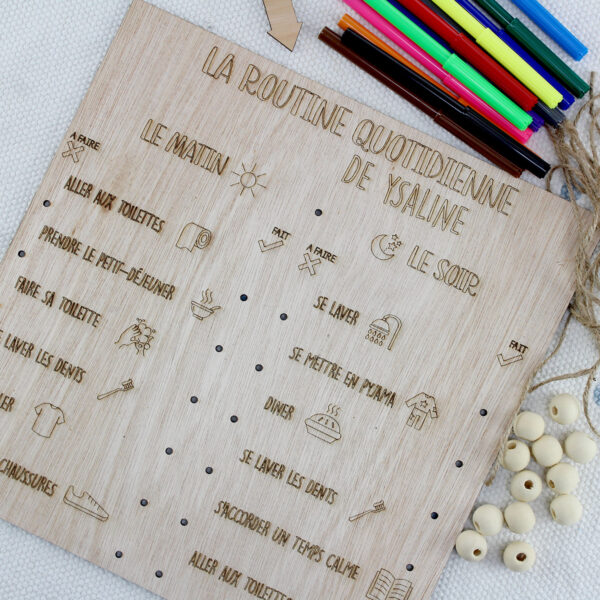 LA ROUTINE QUOTIDIENNE
DE YSALINE
LE MATIN
A FAIRE
FAIT
ALLER AUX TOILETTES
PRENDRE LE PETIT-DÉJEUNER
FAIRE SA TOILETTE
LAVER LES DENTS
CHAUSSURES
LE SOIR
A FAIRE
FAIT
SE LAVER
SE METTRE EN PYJAMA
DINER
SE LAVER LES DENTS
S'ACCORDER UN TEMPS CALME
ALLER AUX TOILETTES